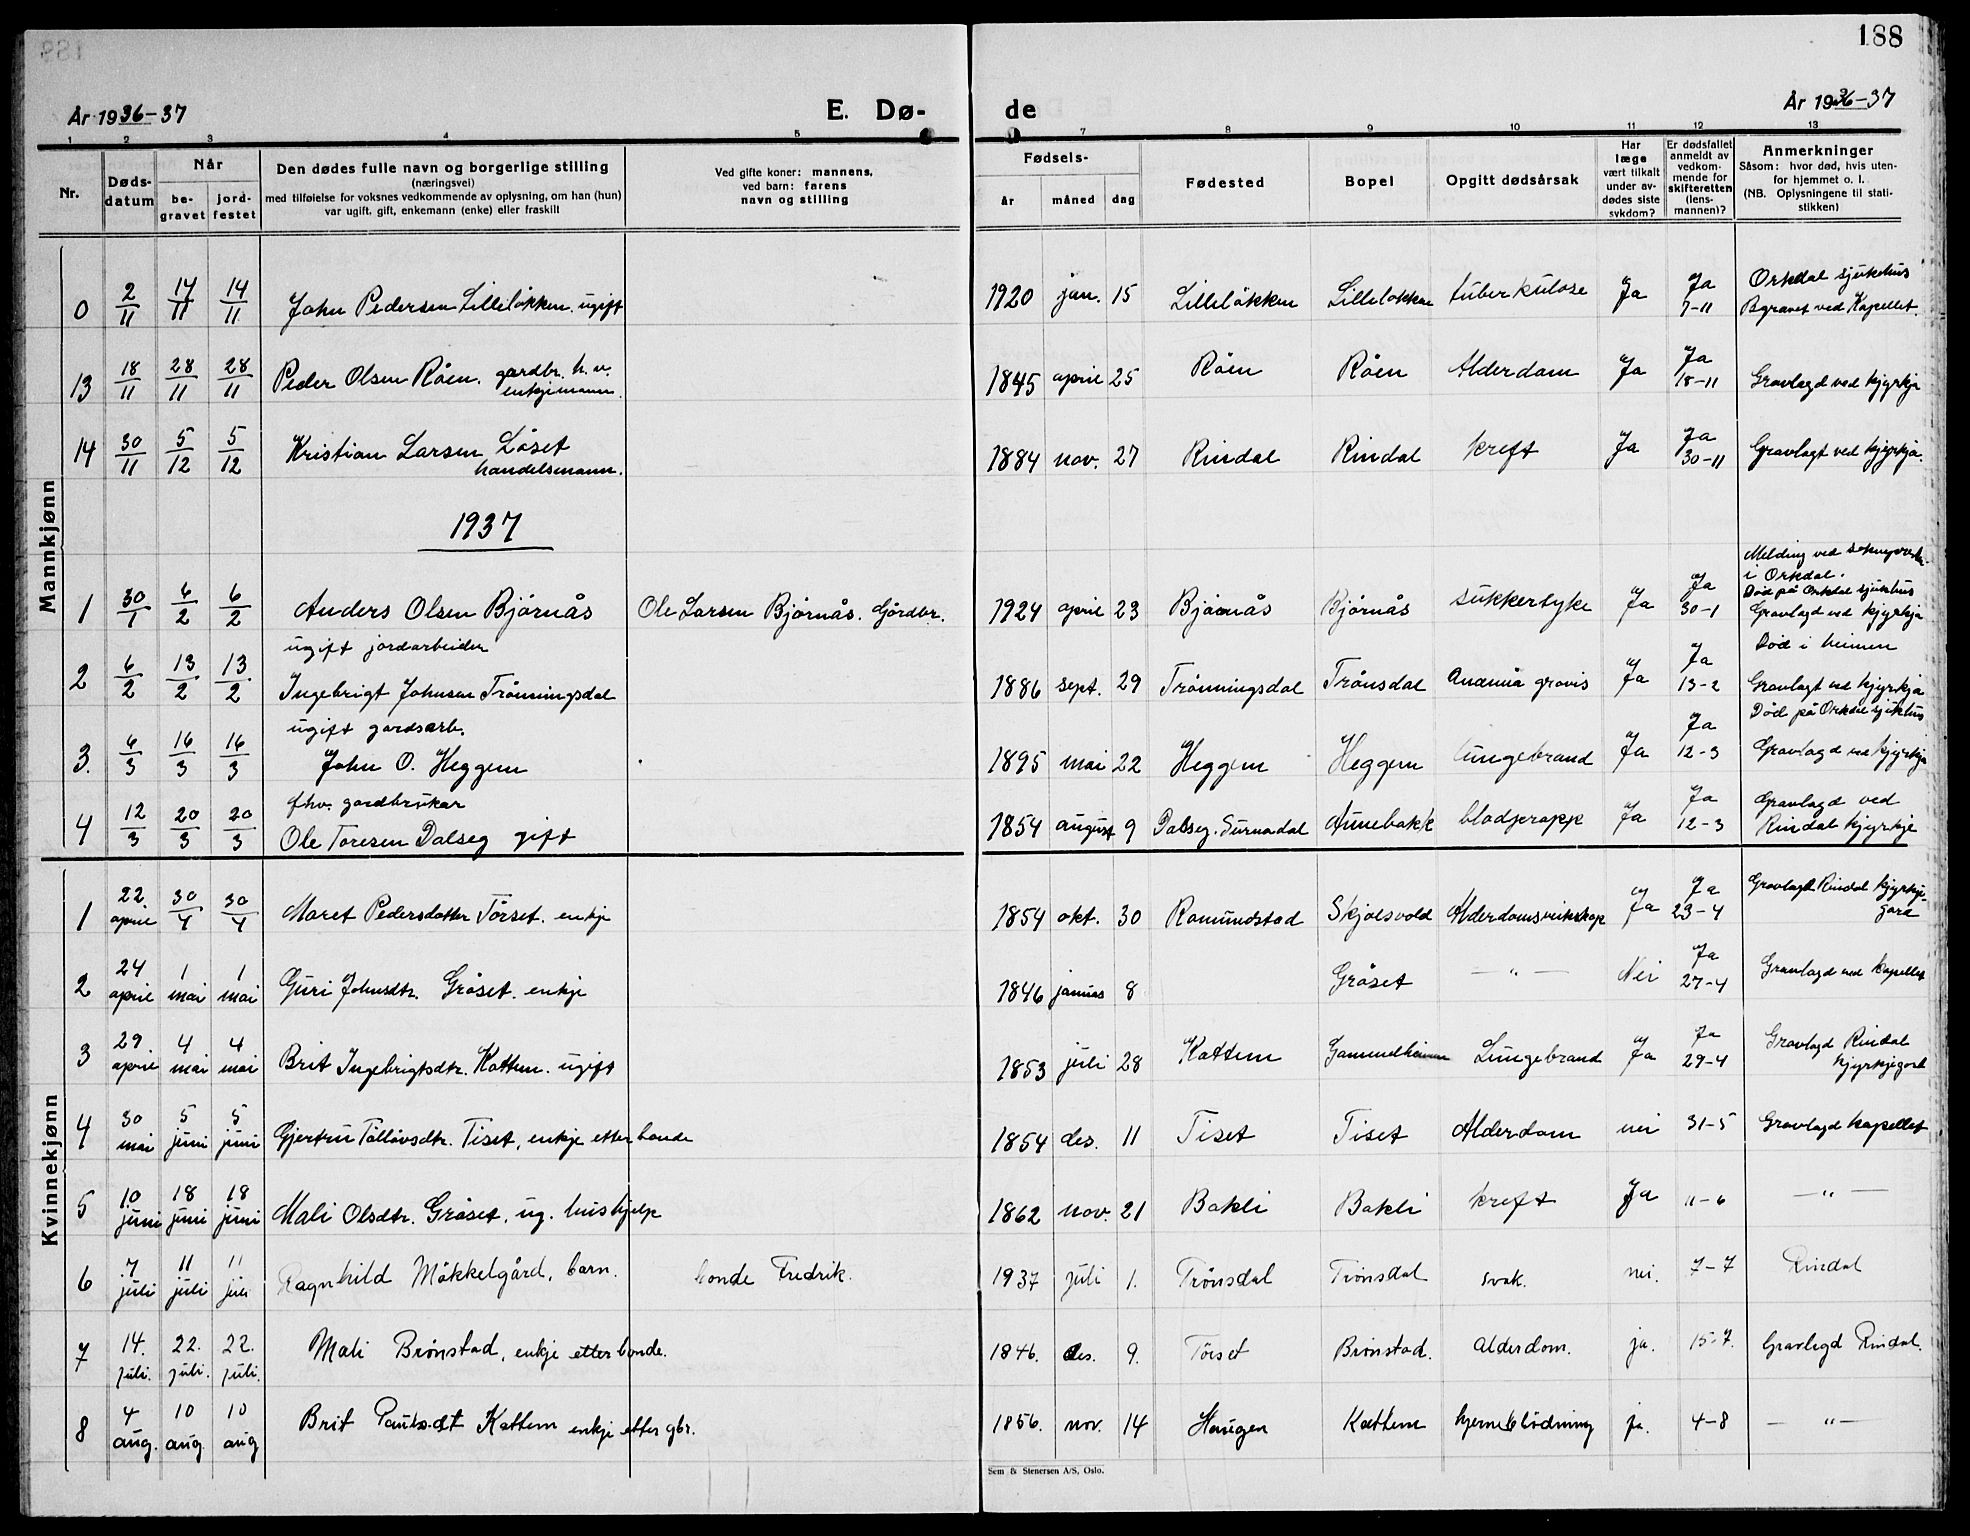 188
År 1936-37
E. Dø-
de
År 1936-37
1 2 3 4 5 7 8 9 10 11 12 13
Nr.
Døds-
datum
Når
be-
gravet
jord-
festet
Den dødes fulle navn og borgerlige stilling
(næringsvei)
med tilføielse for voksnes vedkommende av oplysning, om han (hun)
var ugift, gift, enkemann (enke) eller fraskilt
Ved gifte koner: mannens,
ved barn: farens
navn og stilling
Fødsels-
år måned dag
Fødested
Bopel
Opgitt dødsårsak
Har
læge
vært tilkalt
under av-
dødes siste
sykdom?
Er dødsfallet
anmeldt av
vedkom-
mende for
skifteretten
(lens-
mannen)?
Anmerkninger
Såsom: hvor død, hvis uten-
for hjemmet o. l.
(NB. Oplysningene til stati-
stikken)
Mannkjønn
0 2/11 14/11 14/11 John Pedersen Lilleløkken. ugift 1920 jan. 15 Lilleløkken Lilleløkken tuberkulose Ja Ja 7-11 Orkdal sjukehus
Bgravet ved Kapellet.
13 18/11 28/11 28/11 Peder Olsen Røen. gardbr. h.v. enkjemann. 1845 april 25 Røen Røen Alderdom Ja Ja 18-11 Gravlagd ved kjyrkja
14 30/11 5/12 5/12 Kristian Larsen Løset handelsmann. 1884 nov. 27 Rindal Rindal kreft Ja Ja 30-11 Gravlagt ved kjyrkja.
1937
1 30/1 6/2 6/2 Anders Olsen Bjørnås Ole Larsen Bjørnås. Gårdbr. 1924 april 23 Bjørnås Bjørnås sukkersyke Ja Ja 30-1 Melding ved
i Orkdal.
Død på Orkdal sjukhus
Gravlagd ved kjyrkja
ugift jordarbeider
2 6/2 13/2 13/2 Ingebrigt Johnsen Trønningsdal 1886 sept. 29 Trønningsdal Trønsdal Anæmia gravis Ja Ja 13-2 Død i heimen
Gravlagt ved kjyrkja
ugift gardsarb.
3. 6/3 16/3 16/3 John O. Heggem 1895 mai 22 Heggem Heggem lungebrand Ja Ja 12-3 Død på Orkdal sjukhus
Gravlagd ved kjyrkja
fhv. gardbrukar
4 12/3 20/3 20/3 Ole Toresen Dalseg gift 1854 august 9 Dalseg. Surnadal Aunebakk blodpropp Ja Ja 12-3 Gravlagd ved
Rindal kjyrkje
Kvinnekjønn
1 22 april 30/4 30/4 Maret Pedersdatter Tørset. enkje 1854 okt. 30 Romundstad Skjølsvold Alderdomsveikskap Ja Ja 23-4 Gravlagt Rindal kjyrkje-
gard
2 24 april 1 mai 1 mai Guri Johnsdtr. Grøset. enkje 1846 januar 8 Grøset — " — Nei Ja 27-4 Gravlagd ved kapellet
3 29 april 4 mai 4 mai Brit Ingebrigtsdtr. Kattem. ugift 1853 juli 28 Kattem Gammelheimen Lungebrand Ja Ja 29-4 Gravlagd Rindal
kjyrkjegard
4 30 mai 5 juni 5 juni Gjertru Tølløvsdtr. Tiset, enkje etter bonde 1854 des. 11 Tiset Tiset Alderdom nei 31-5 Gravlagd kapellet
5 10 juni 18 juni 18 juni Mali Olsdtr. Grøset, ug. hushjelp 1862 nov. 21 Bakli Bakli kreft Ja 11-6 — " —
6 7 juli 11 juli 11 juli Ragnhild Møkkelgård, barn. bonde Fredrik. 1937 juli 1. Trønsdal Trønsdal svak. nei. 7-7 Rindal
7 14. juli. 22. juli. 22. juli. Mali Brønstad, enkje etter bonde. 1846. des. 9. Tørset Brønstad. Alderdom. ja. 15-7. Gravlagd Rindal.
8 4 aug. 10 aug. 10 aug Brit Paulsdt Kattem enkje etter gbr. 1856. nov. 14 Haugen Kattem hjerneblødning ja. 4-8 — " —
Sem & Stenersen A/S, Oslo.